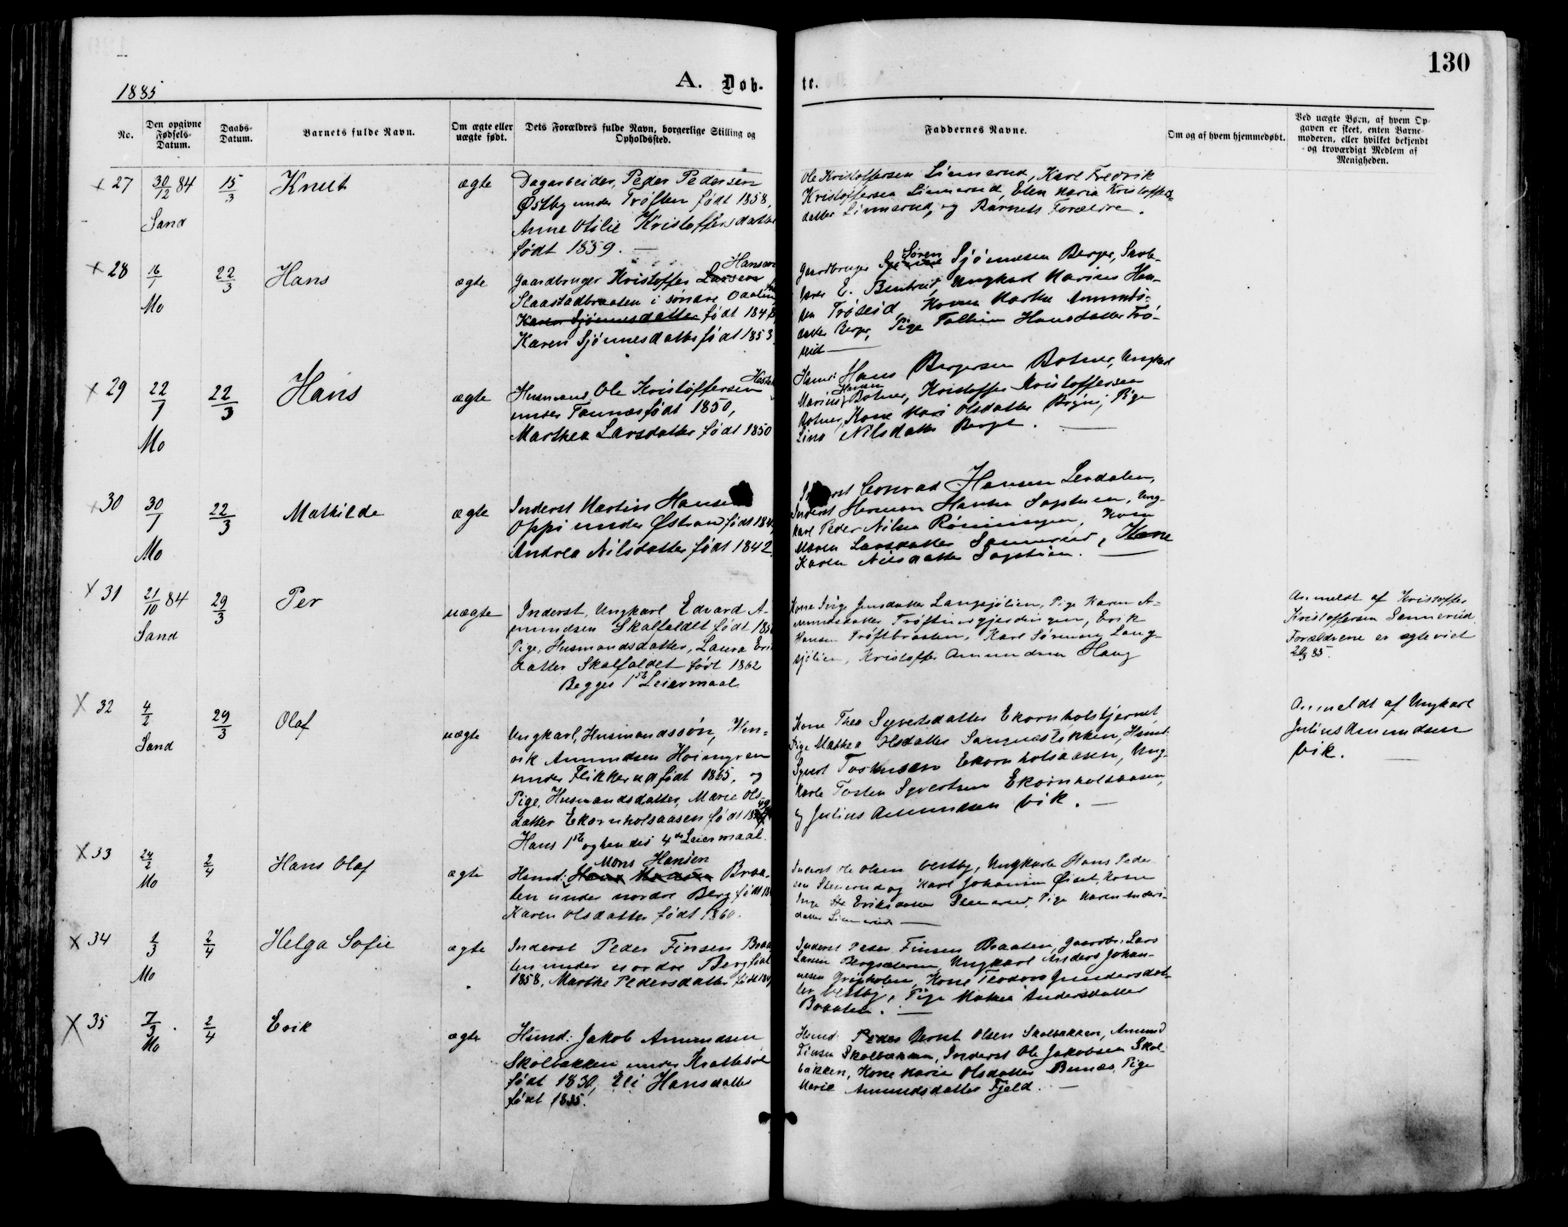 130
1885
A. Døb-
te.
No.
Den opgivne Fødsels-Datum.
Daabs-Datum.
Barnets fulde Navn.
Om ægte eller uægte født.
Dets Forældres fulde Navn, borgerlige Stilling og Opholdssted.
Faddernes Navne.
Om og af hvem hjemmedøbt.
Ved uægte Børn, af hvem Opgaven er skeet, enten Barnemoderen, eller hvilket bekjendt og troværdigt Medlem af Menigheden.
27 30/12 84 15/3 Knut ægte
Sand
Dagarbeider, Peder Pedersen
Østby under Trøften født 1858,
Anne Otilie Kristoffersdatter
født 1859.
Ole Kristoffersen Linnerud, Karl Fredrik
Kristoffersen Linnerud, Elen Maria Kristoffers
datter Linnerud, og Barnets Forældre.
28 16/1 22/3 Hans ægte
Mo
Hansen
Gaardbruger Kristoffer Larsen
Slaastadbraaten i søndre
Karen Sjønnesdatter født 184
Karen Sjønnesdatter født 1853
Søren
Gaardbruger Sjønnesen Berger,
E. Ungkarl Marius Han-
sen Trøseid Kone Marthe
datter Berg, Pige Hansdatter Trø-
seid
29 22/1 22/3 Hans ægte
Mo
Husmand Ole Kristoffersen
under født 1850,
Marthea Larsdatter født 1850
Husmd Hans Bergersen Botner, Ungkarl
Marius Botner, Kristoffer Kristoffersen
Botner, Kone Mari Olsdatter Pige
Lina Nilsdatter Berget.
30 30/1 22/3 Mathilde ægte
Mo
Inderst Martin Hansen
Oppi under Østrand født 184
Andrea Nilsdatter født 1842
Inderst Conrad Hansen
Inderst Herman Hansen Ung-
karl Peder Nilsen Rønningen, Kone
Maren Larsdatter Kone
Karen Nilsdatter
31 21/10 84 29/3 Per uægte
Sand
Inderst, Ungkarl Edvard A-
mundsen Skalfaldet født 18
Pige, Husmandsdatter, Laura Eri
datter Skalfaldet født 1862
Begges 1ste Leiermaal
Kone Jensdatter Langsjølien, Pige Karen A-
mundsdatter Erik
Hansen Trøftbraaten, Karl Lang-
sjølien, Kristoffer Amundsen Haug
Anmeldt af Kristoffer
Kristoffersen Linnerud
Forældrene er egteviet
85.
32 4/2 29/3 Olaf uægte
Sand
Ungkarl, Husmandssøn, Hen-
rik Amundsen Høimyren
under Flikkerud født 1865, og
Pige, Husmandsdatter, Marie Ols
datter Ekornholsaasen født 18
Hans 1ste og hendes 4de Leiermaal
Kone Thea Syversdatter Ekornholstjernet,
Pige Mathea Olsdatter Husmd
Syvert Ekornholsaasen, Ung-
karle Torsten Syvertsen Ekornholsaasen,
og Julius Amundsen Vik.
Anmeldt af Ungkarl
Julius Amundsen
Vik.
33 24/2 2/4 Hans Olaf ægte
Mo
Mons Hansen
Husmd: Braa-
ten under nordre Berg født 18
Karen Olsdatter født 1860.
Inderst Ole Olsen Østby, Ungkarle Hans Peder-
sen og Karl Johansen Kone
Eriksdatter Pige Karen Anders-
datter Linnerud
34 1/3 2/4 Helga Sofie ægte
Mo
Inderst Peder Finsen Braa
ten under nordre Berg født
1858, Marthe Pedersdatter født 18
Inderst Peder Finsen Braaten, Gaardbr: Lars
Larsen Ungkarl Anders Johan-
nesen Kone Gundersdat-
ter Østby, Pige Mathea Andersdatter
Braaten.
35 7/3 2/4 Erik ægte
Mo
Husmd: Jakob Amundsen
Skolbakken under
født 1850, Eli Hansdatter
født 1855.
Husmd: Peder Bernt Olsen Skolbakken, Amund
Finsen Skolbakken, Inderst Ole Jakobsen Skol-
bakken, Kone Marie Olsdatter Pige
Marie Amundsdatter Fjeld.